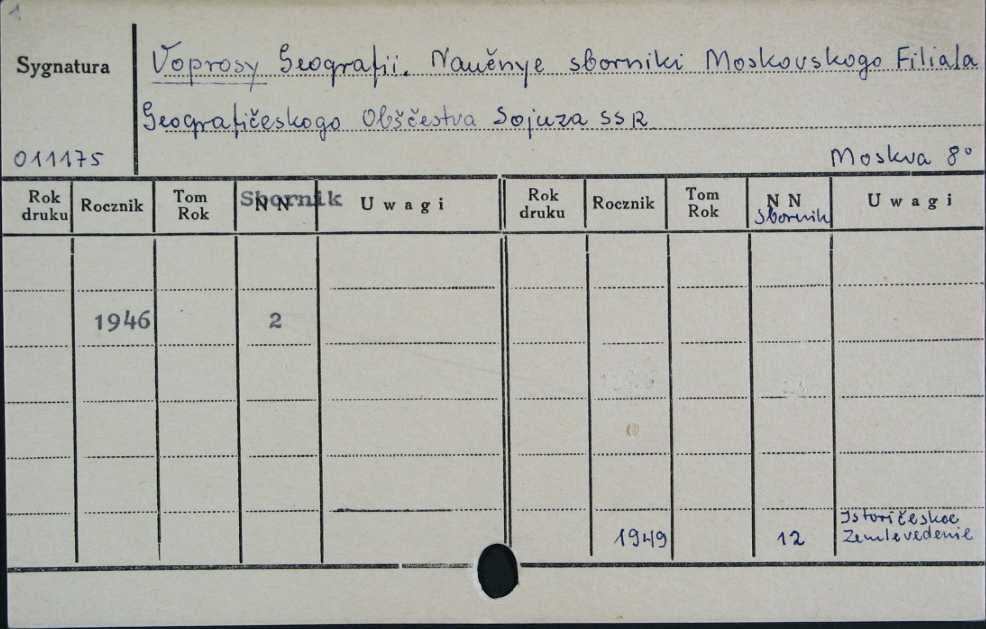 1
Sygnatura
Voprosy Geografii. Naučnye sborniki Moskovskogo Filiala
Geografičeskogo Obščestva Sojuza SSR
011175
Moskva 8°
Rok druku Rocznik Tom Rok NN Sbornik Uwagi Rok druku Rocznik Tom Rok NN sbornik Uwagi
1946 2
1949 12 Istoričeskoe
Zemlevedenie